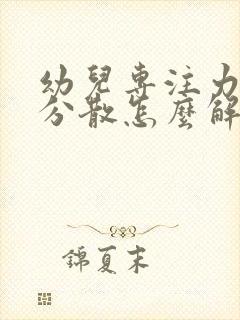 幼兒專注力
分散怎麼解
錦夏末